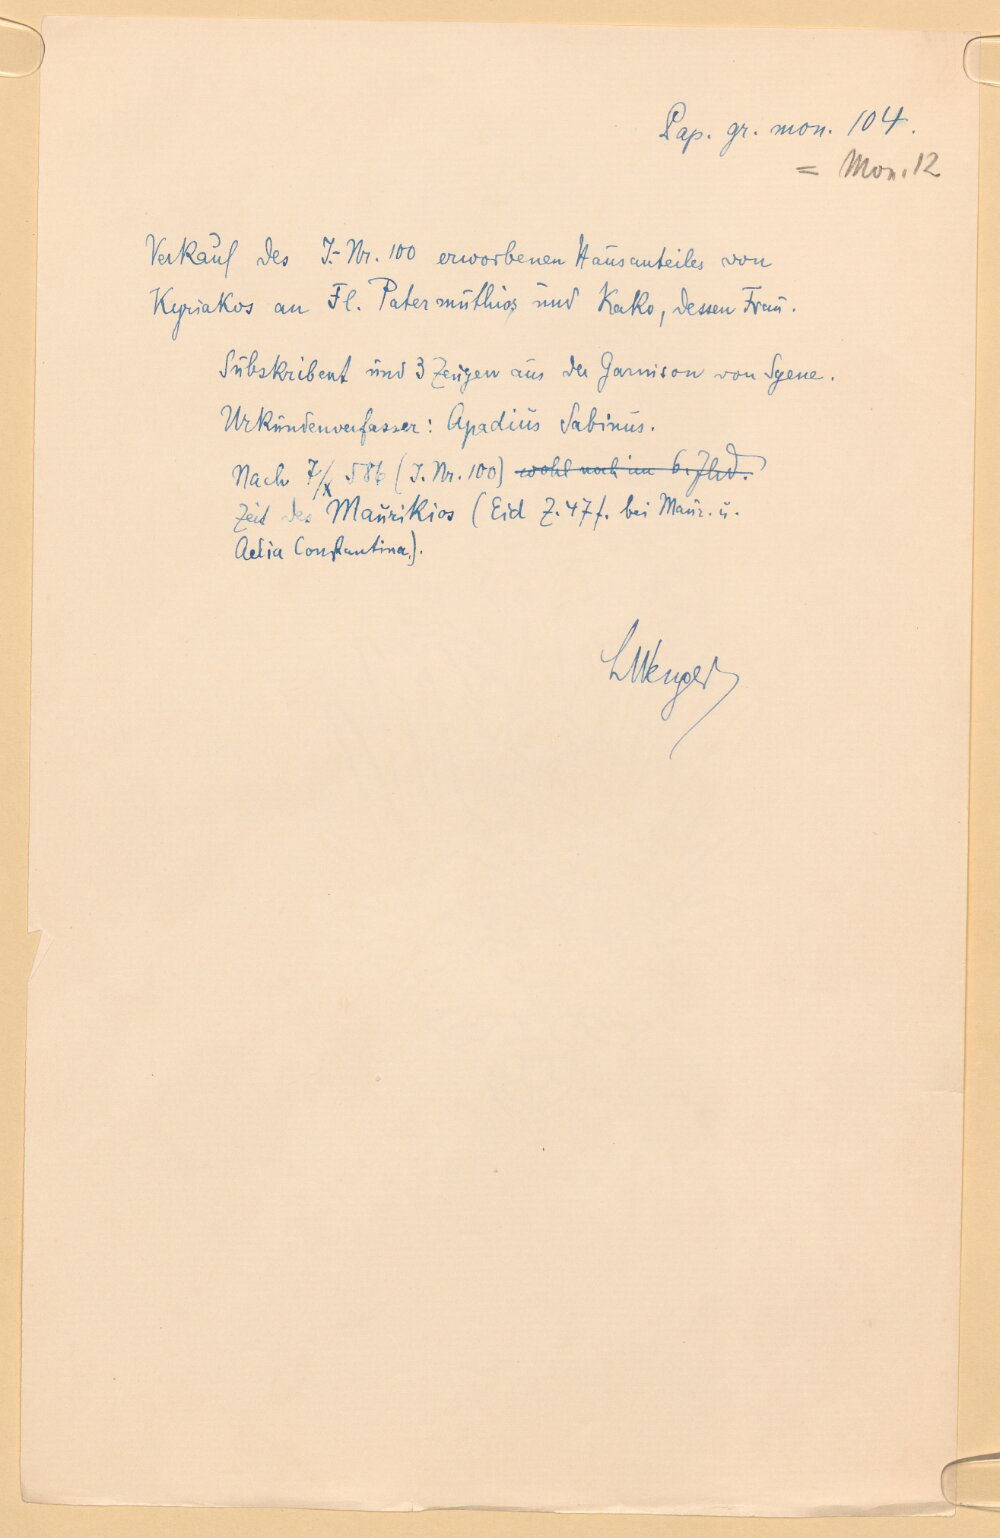 Pap. gr. mon. 104.
= Mon. 12
Verkauf des J.-Nr. 100 erworbenen Hausanteiles von
Kyriakos an Fl. Patermuthios und Kako, dessen Frau.
Subskribent und 3 Zeugen aus der Garnison von Syene.
Urkundenverfasser: Apadius Sabinus.
Nach 7/X 586 (J. Nr. 100) wohl noch im 6. Jhd.
Zeit des Maurikios (Eid Z. 47 f. bei Maur. u.
Aelia Constantina).
LWenger